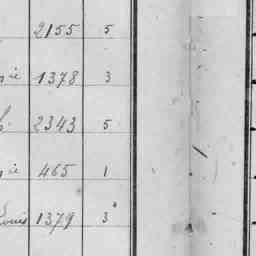 2155 5
ie 1378 3
2343 5
ie 465 1
Louis 1379 3